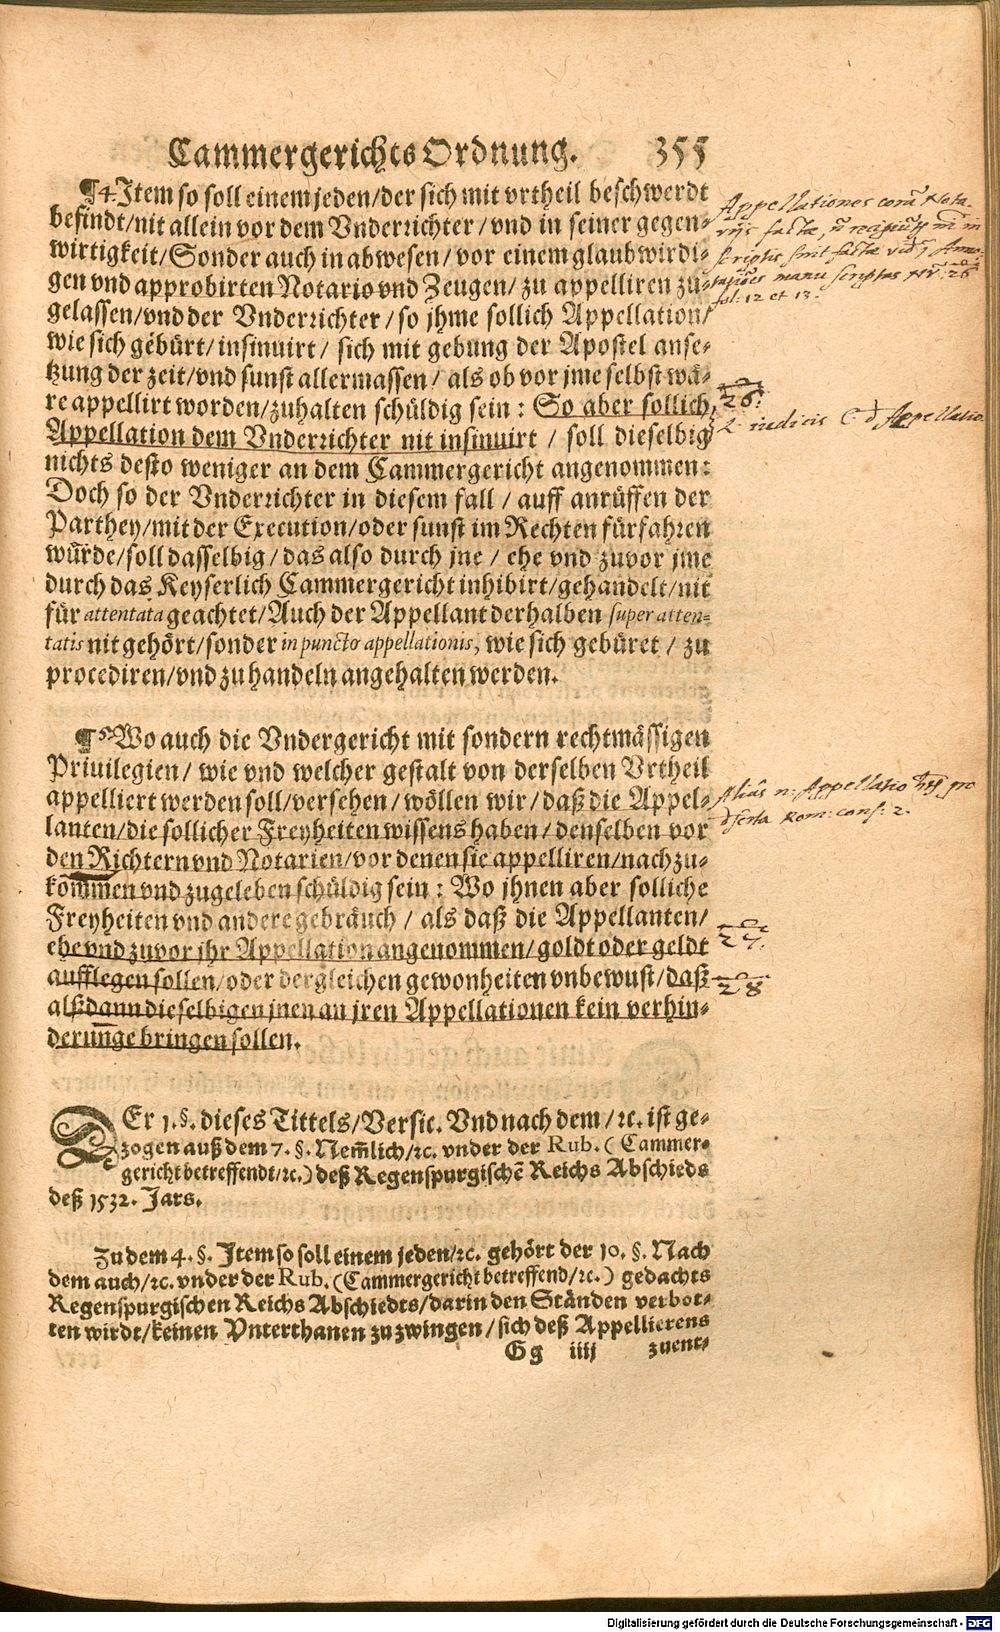 Cammergerichts Ordnung. 355
¶4. Item so soll einem jeden/der sich mit vrtheil beschwerdt
befindt/nit allein vor dem Vnderrichter/vnd in seiner gegen-
wirtigkeit/Sonder auch in abwesen/vor einem glaubwirdi-
gen vnd approbirten Notario vnd Zeugen/zu appelliren zu-
gelassen/vnd der Vnderrichter/so jhme sollich Appellation/
wie sich gebürt/insinuirt/ sich mit gebung der Apostel anse-
tzung der zeit/vnd sunst allermassen/ als ob vor jme selbst wä-
re appellirt worden/zuhalten schüldig sein: So aber sollich
Appellation dem Vnderrichter nit insinuirt / soll dieselbig
nichts desto weniger an dem Cammergericht angenommen:
Doch so der Vnderrichter in diesem fall / auff anrüffen der
Parthey/mit der Execution/oder sunst im Rechten fürfahren
würde/soll dasselbig/das also durch jne / ehe vnd zuvor jme
durch das Keyserlich Cammergericht inhibirt/gehandelt/nit
für attentata geachtet/Auch der Appellant derhalben super atten-
tatis nit gehört/sonder in puncto appellationis, wie sich gebüret / zu
procediren/vnd zu handeln angehalten werden.
¶5. Wo auch die Vndergericht mit sondern rechtmässigen
Priuilegien/ wie vnd welcher gestalt von derselben Vrtheil
appelliert werden soll/versehen/ wöllen wir/ daß die Appel-
lanten/die sollicher Freyheiten wissens haben/denselben vor
den Richtern vnd Notarien/vor denen sie appelliren/nachzu-
kommen vnd zugeleben schüldig sein: Wo jhnen aber solliche
Freyheiten vnd andere gebräuch / als daß die Appellanten/
ehe vnd zuvor ihr Appellation angenommen/goldt oder geldt
aufflegen sollen/oder dergleichen gewonheiten vnbewust/daß
alßdann dieselbigen jnen an jren Appellationen kein verhin-
derunge bringen sollen.
DEr 1.§. dieses Tittels/Versic. Vnd nach dem/ ꝛc. ist ge-
zogen auß dem 7. §. Nem̄lich/ꝛc. vnder der Rub. ( Cammer-
gericht betreffendt/ꝛc.) deß Regenspurgischē Reichs Abschieds
deß 1532. Jars.
Zu dem 4. §. Item so soll einem jeden/ꝛc. gehört der 10. §. Nach
dem auch/ꝛc. vnder der Rub. (Cammergericht betreffend/ꝛc.) gedachts
Regenspurgischen Reichs Abschiedts/darin den Ständen verbot-
ten wirdt/keinen Vnterthanen zu zwingen/sich deß Appellierens
Gg iiij zuent-
Appellationes corā Nota-
factae
manu scriptas
fol: 12 et 13.
26.
Appellatio
Aliàs n: Appellatio pro
Rom: cons: 2.
27.
28
Digitalisierung gefördert durch die Deutsche Forschungsgemeinschaft - DFG